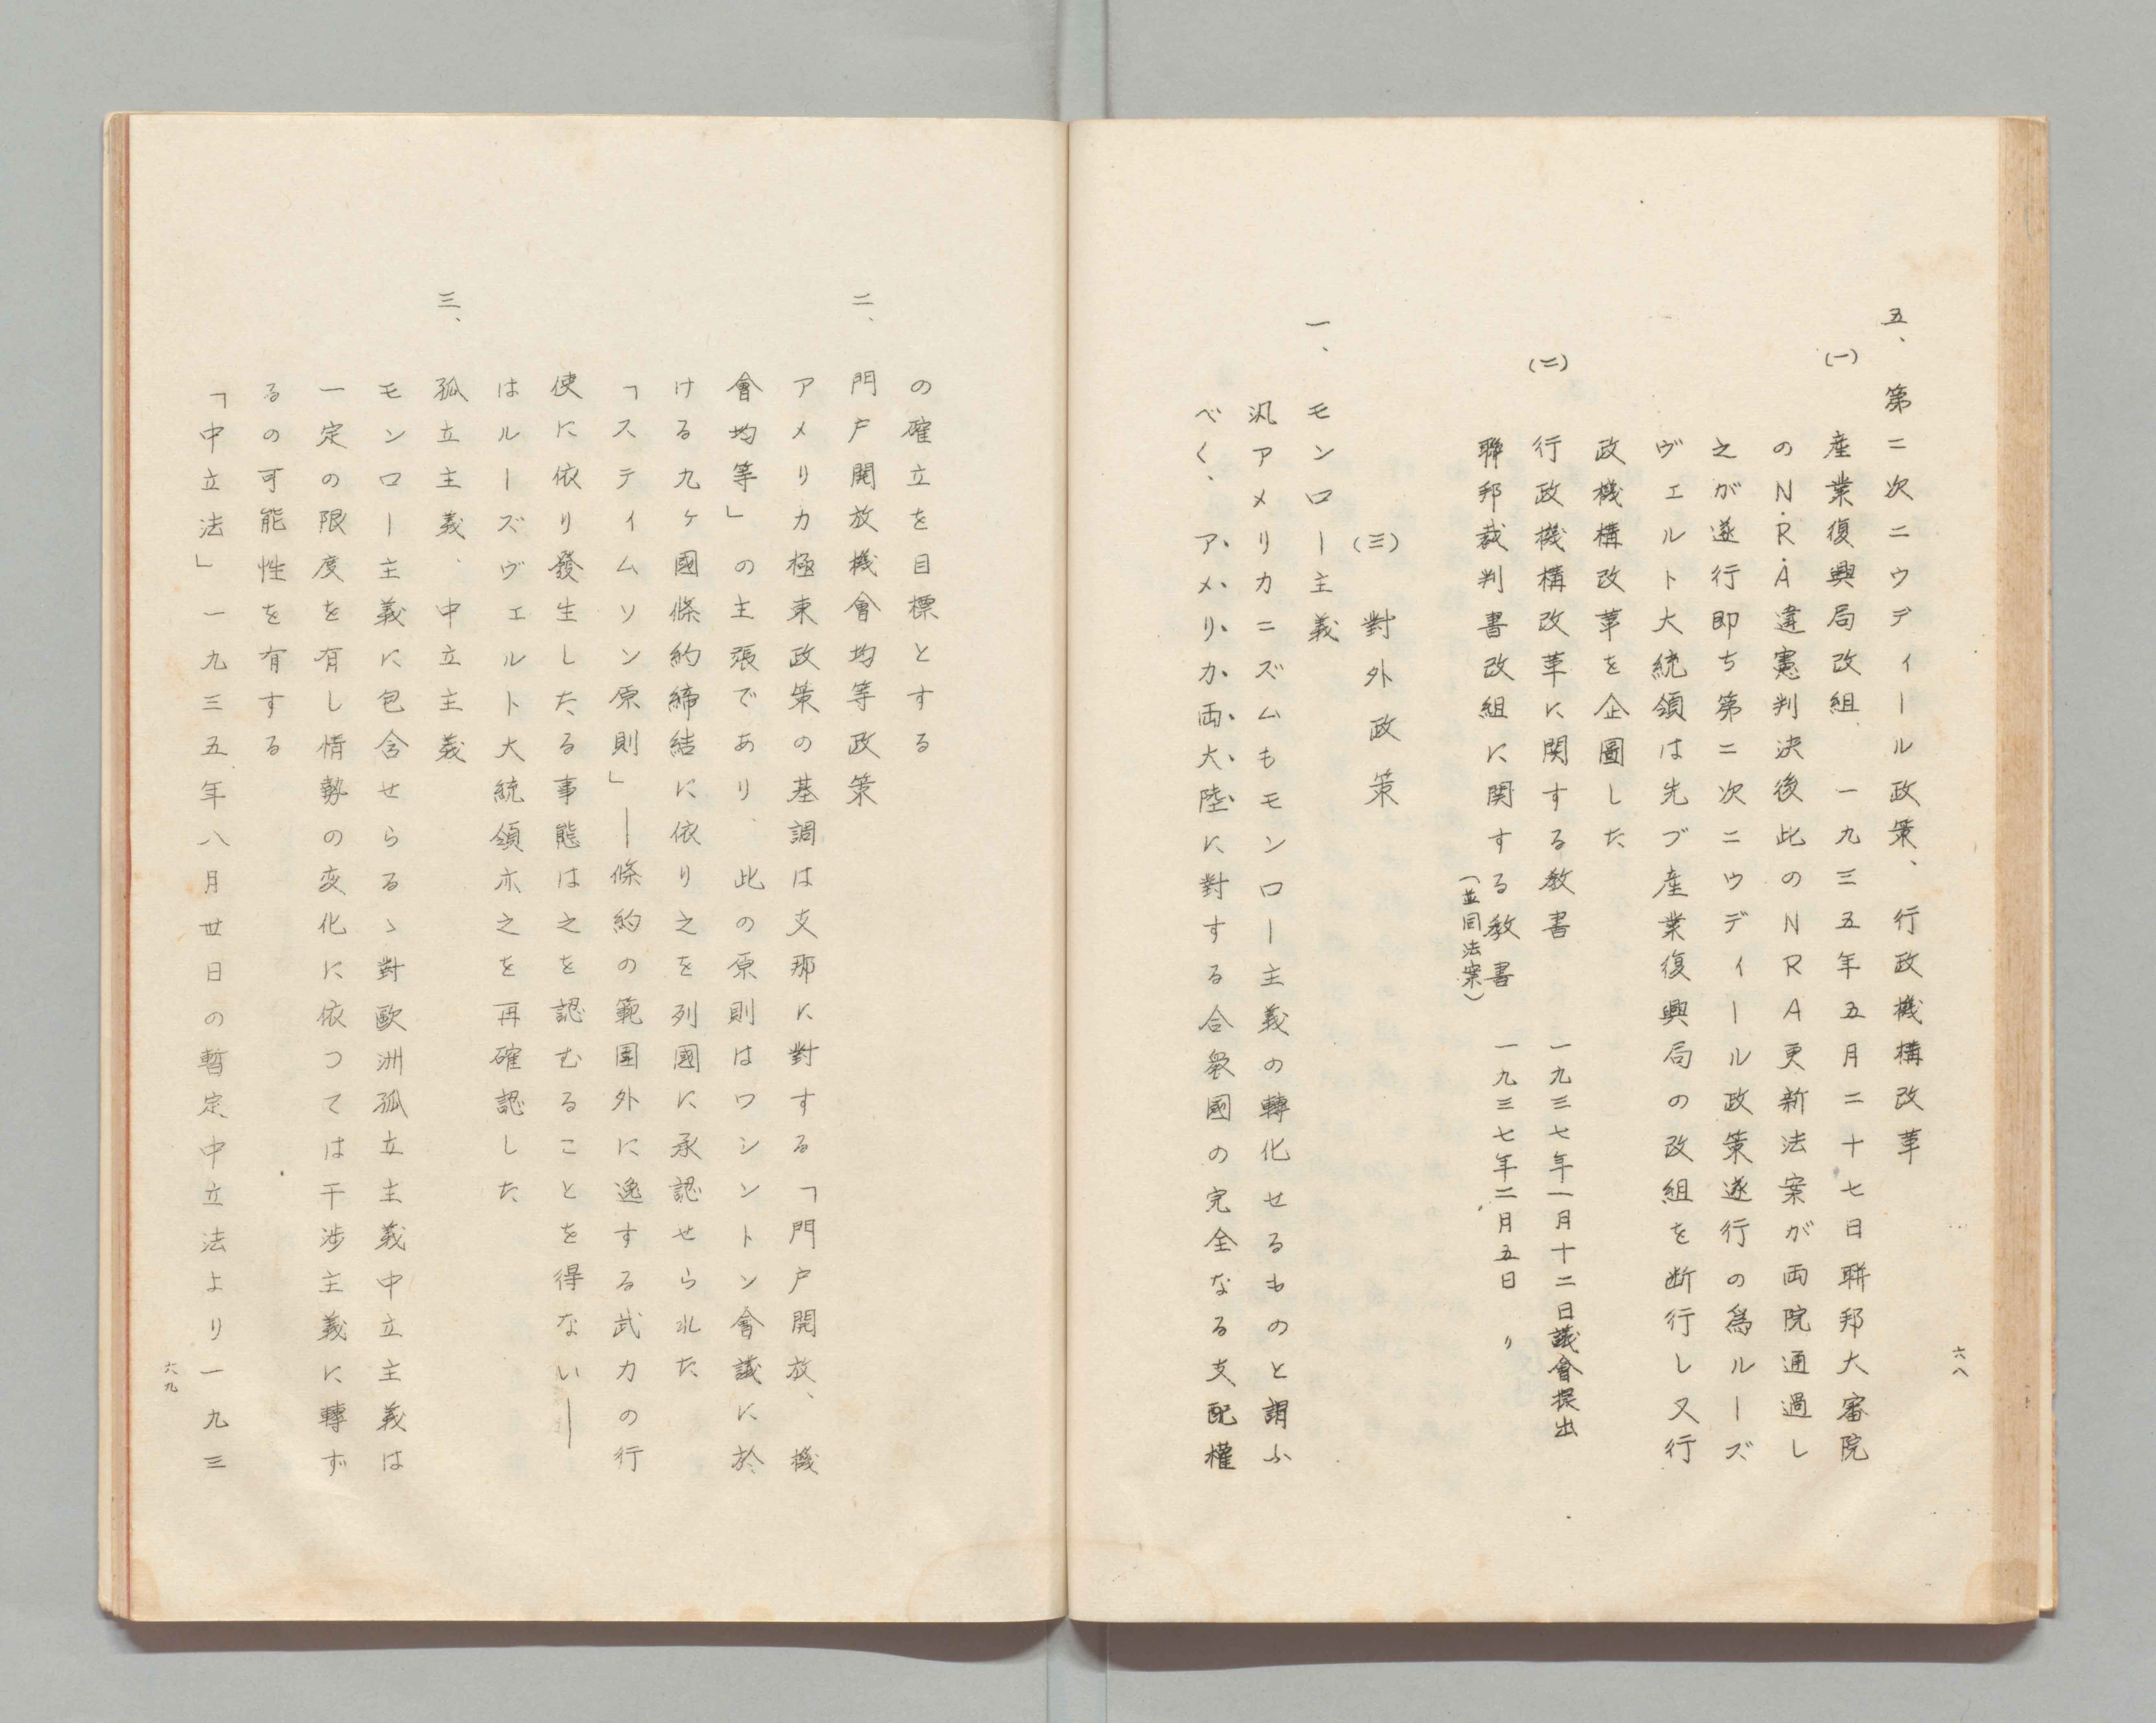 六八
五、第二次ニウディール政策、行政機構改革
(一) 産業復興局改組、一九三五年五月二十七日聯邦大審院
のN.R.A違憲判決後此のNRA更新法案が両院通過し
之が遂行即ち第二次ニウディール政策遂行の為ルーズ
ヴェルト大統領は先づ産業復興局の改組を断行し又行
政機構改革を企圖した
(二) 行政機構改革に関する教書 一九三七年一月十二日議會提出
聯邦裁判書改組に関する教書 一九三七年二月五日 〃
(並同法案)
(三) 對外政策
一、モンロー主義
汎アメリカニズムもモンロー主義の轉化せるものと謂ふ
べく、アメリカ両大陸に對する合衆國の完全なる支配權
の確立を目標とする
二、門戸開放機會均等政策
アメリカ極東政策の基調は支那に對する「門戸開放、機
會均等」の主張であり、此の原則はワシントン會議に於
ける九ヶ國條約締結に依り之を列國に承認せられた
「スティムソン原則」―條約の範囲外に逸する武力の行
使に依り發生したる事態は之を認むることを得ない―
はルーズヴェルト大統領亦之を再確認した
三、孤立主義、中立主義
モンロー主義に包含せらるゝ對歐洲孤立主義中立主義は
一定の限度を有し情勢の変化に依つては干渉主義に轉ず
るの可能性を有する
「中立法」一九三五年八月丗日の暫定中立法より一九三
六九